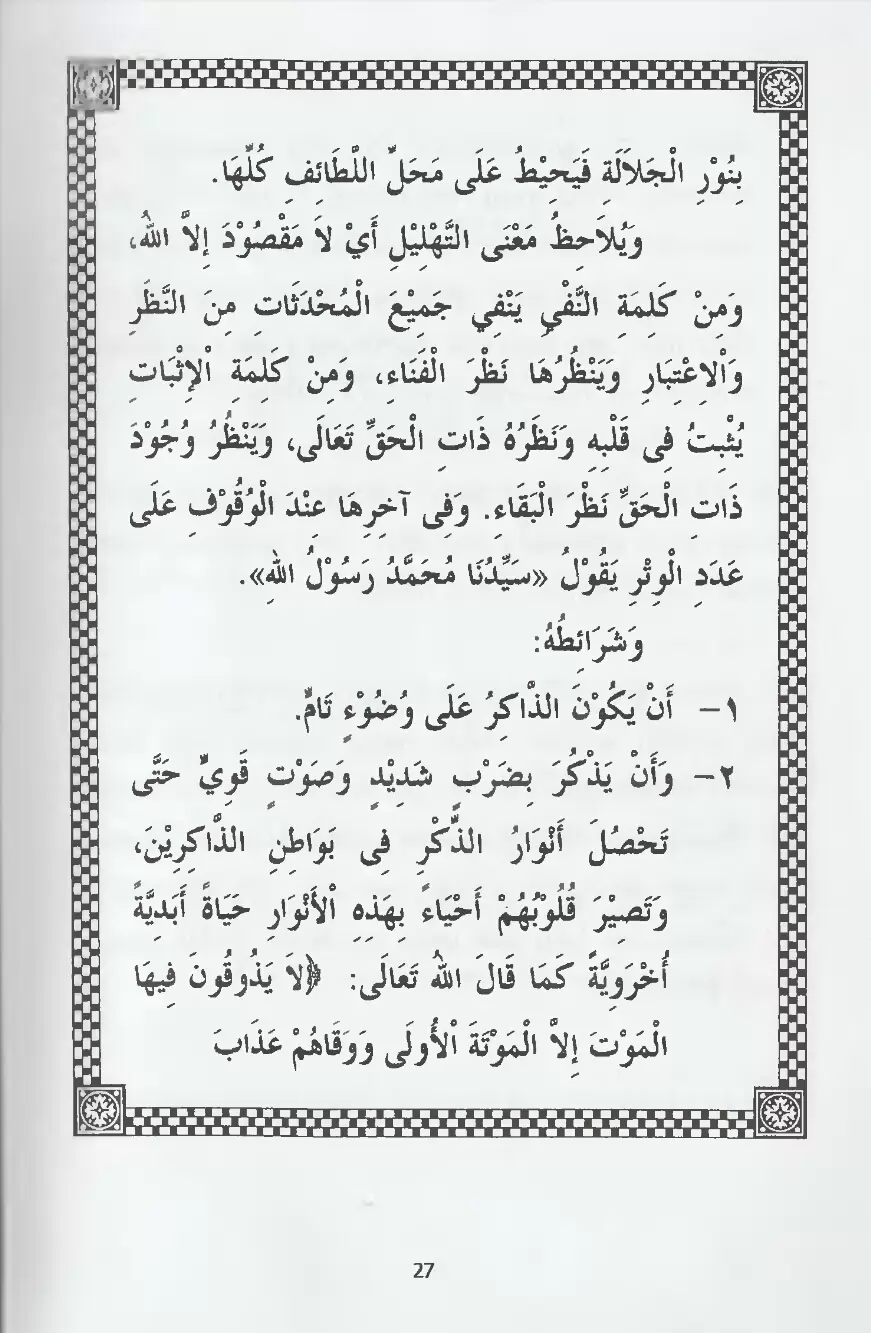 بِنُوْرِ الْجَلاَلَةِ فَيَحِيْطُ عَلَى مَحَلِّ اللَّطَائِفِ كُلِّهَا.
وَيُلاَحِظُ مَعْنَى التَّهْلِيْلِ أَيْ لاَ مَقْصُوْدَ إِلاَّ اللهُ،
وَمِنْ كَلِمَةِ النَّفْيِ يَنْفِي جَمِيْعَ الْمُحْدَثَاتِ مِنَ النَّظَرِ
وَاْلاِعْتِبَارِ وَيَنْظُرُهَا نَظَرَ الْفَنَاءِ، وَمِنْ كَلِمَةِ اْلإِثْبَاتِ
يُثْبِتُ فِى قَلْبِهِ وَنَظَرُهُ ذَاتَ الْحَقِّ تَعَالَى، وَيَنْظُرُ وُجُوْدَ
ذَاتِ الْحَقِّ نَظَرَ الْبَقَاءِ. وَفِى آخِرِهَا عِنْدَ الْوُقُوْفِ عَلَى
عَدَدِ الْوِتْرِ يَقُوْلُ «سَيِّدُنَا مُحَمَّدٌ رَسُوْلُ اللهِ».
وَشَرَائِطُهُ:
١ – أَنْ يَكُوْنَ الذَّاكِرُ عَلَى وُضُوْءٍ تَامٍّ.
٢ – وَأَنْ يَذْكُرَ بِضَرْبٍ شَدِيْدٍ وَصَوْتٍ قَوِيٍّ حَتَّى
تَحْصُلَ أَنْوَارُ الذِّكْرِ فِى بَوَاطِنِ الذَّاكِرِيْنَ،
وَتَصِيْرَ قُلُوْبُهُمْ أَحْيَاءً بِهَذِهِ اْلأَنْوَارِ حَيَاةً أَبَدِيَّةً
أُخْرَوِيَّةً كَمَا قَالَ اللهُ تَعَالَى: ﴿لاَ يَذُوقُونَ فِيهَا
الْمَوْتَ إِلاَّ الْمَوْتَةَ اْلأُولَى وَوَقَاهُمْ عَذَابَ
27